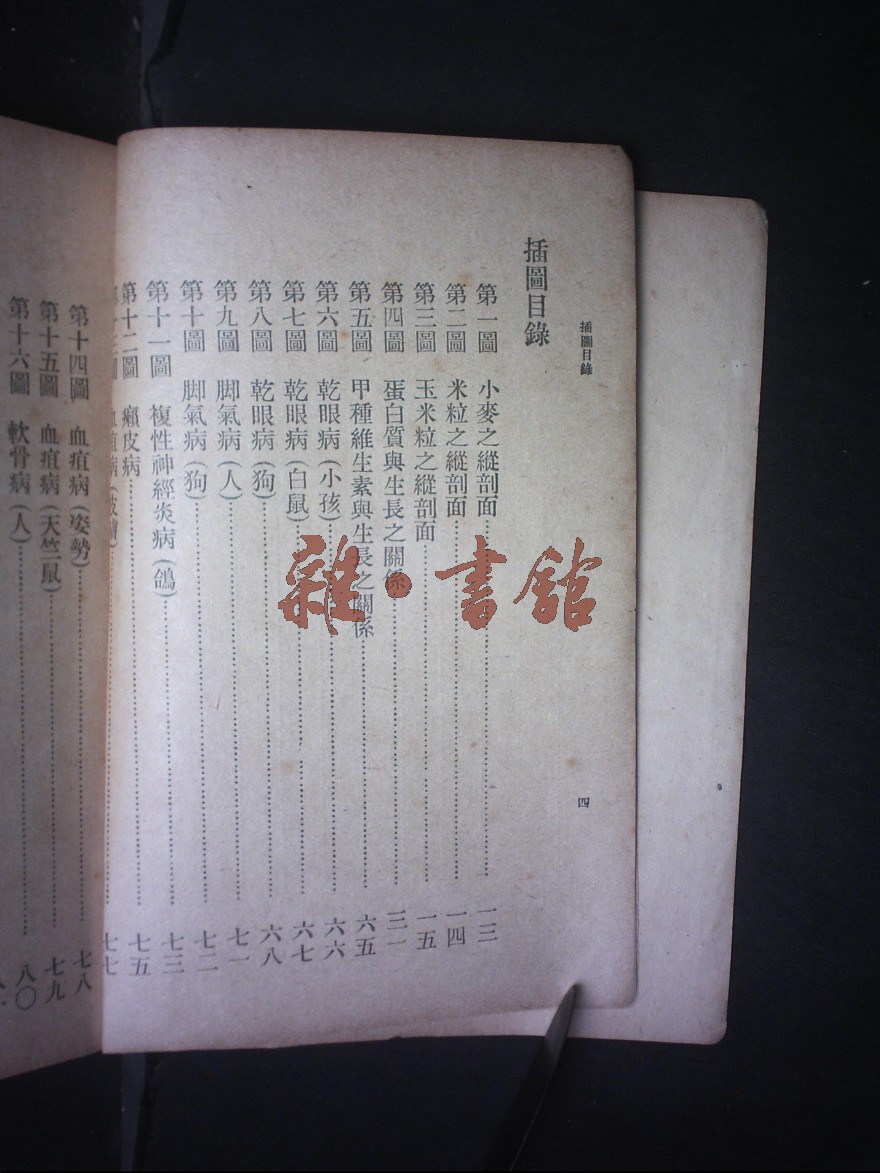 插圖目錄
四
插圖目錄
第一圖 小麥之縱剖面 一三
第二圖 米粒之縱剖面 一四
第三圖 玉米粒之縱剖面 一五
第四圖 蛋白質與生長之關係 三一
第五圖 甲種維生素與生長之關係 六五
第六圖 乾眼病(小孩) 六六
第七圖 乾眼病(白鼠) 六七
第八圖 乾眼病(狗) 六八
第九圖 脚氣病(人) 七一
第十圖 脚氣病(狗) 七二
第十一圖 複性神經炎病(鴿) 七三
第十二圖 癩皮病 七五
血疽病 七七
第十四圖 血疽病(姿勢) 七八
第十五圖 血疽病(天竺鼠) 七九
第十六圖 軟骨病(人) 八〇
雜·書館